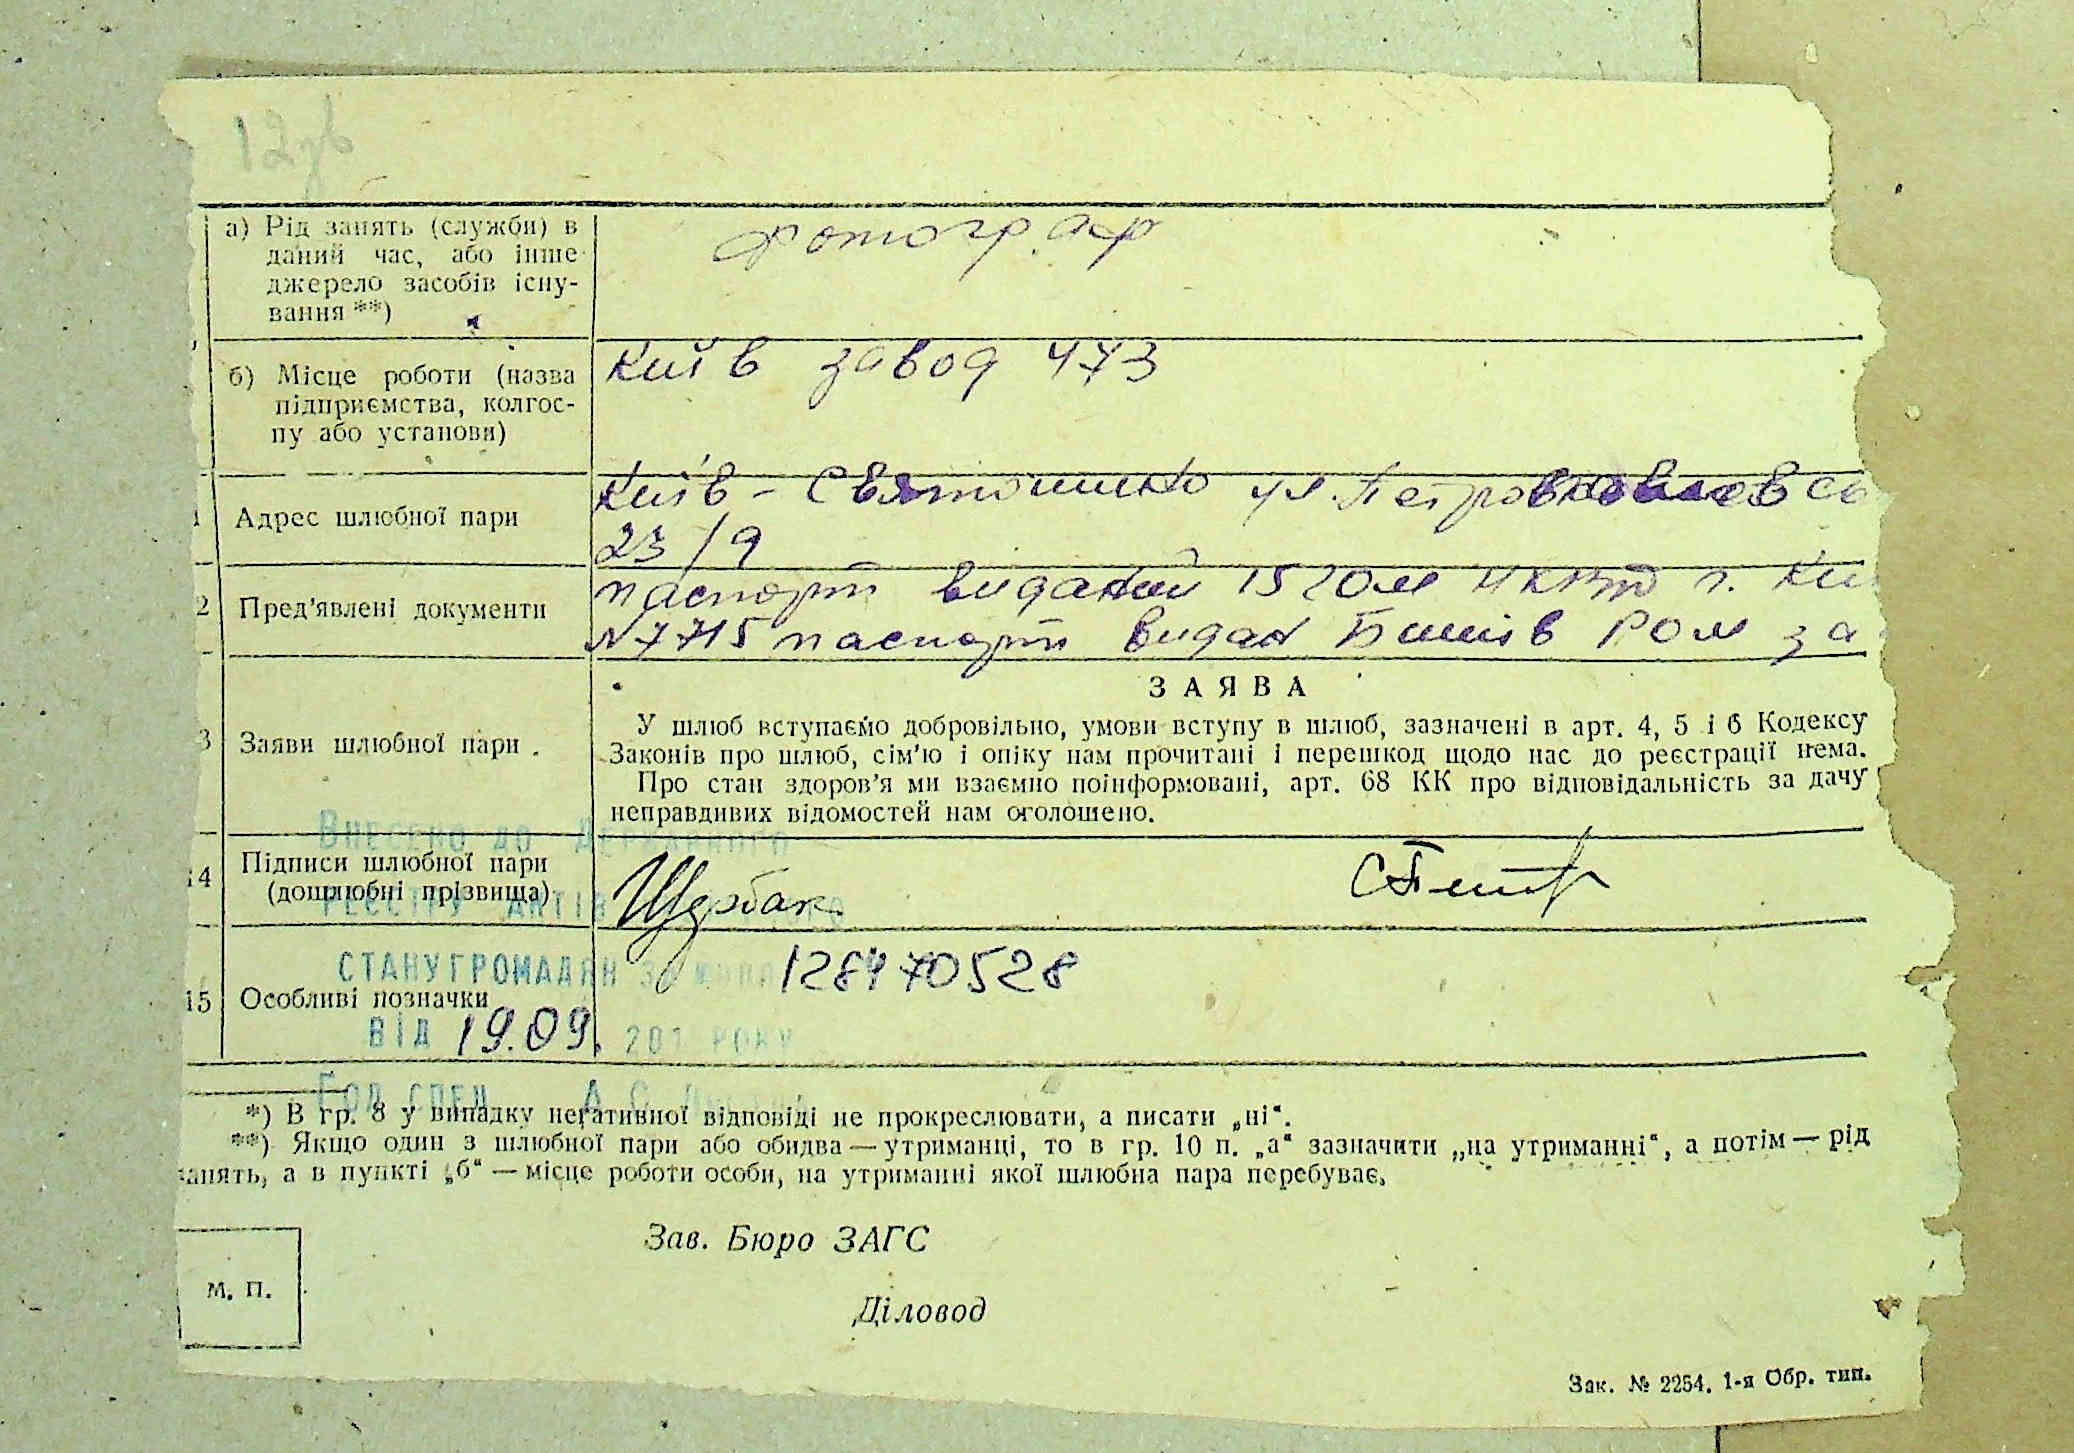 12зв
а) Рід занять (служби) в
даний час, або інше
джерело засобів існу-
вання **)
фотограф
б) Місце роботи (назва
підприємства, колгос-
пу або установи)
Київ завод 473
Адрес шлюбної пари
Київ - Святошино ул.
23/9
2 Пред'явлені документи
паспорт виданий 15 20м НКВД г. Ки
N7715 паспорт видан РОМ за
3 Заяви шлюбної пари .
ЗАЯВА
У шлюб вступаємо добровільно, умови вступу в шлюб, зазначені в арт. 4, 5 і 6 Кодексу
Законів про шлюб, сім'ю і опіку нам прочитані і перешкод щодо нас до реєстрації нема.
Про стан здоров'я ми взаємно поінформовані, арт. 68 КК про відповідальність за дачу
неправдивих відомостей нам оголошено.
Внесено до Державного
14 Підписи шлюбної пари
(дошлюбні прізвища)
Щербак
реєстру актів
15 Особливі позначки
128470528
стану громадян за
від 19.09. 201 року
Гол спец А С
*) В гр. 8 у випадку негативної відповіді не прокреслювати, а писати „ні“.
**) Якщо один з шлюбної пари або обидва — утриманці, то в гр. 10 п. „а“ зазначити „на утриманні“, а потім — рід
занять, а в пункті „б“ — місце роботи особи, на утриманні якої шлюбна пара перебуває.
Зав. Бюро ЗАГС
М. П.
Діловод
Зак. № 2254. 1-я Обр. тип.